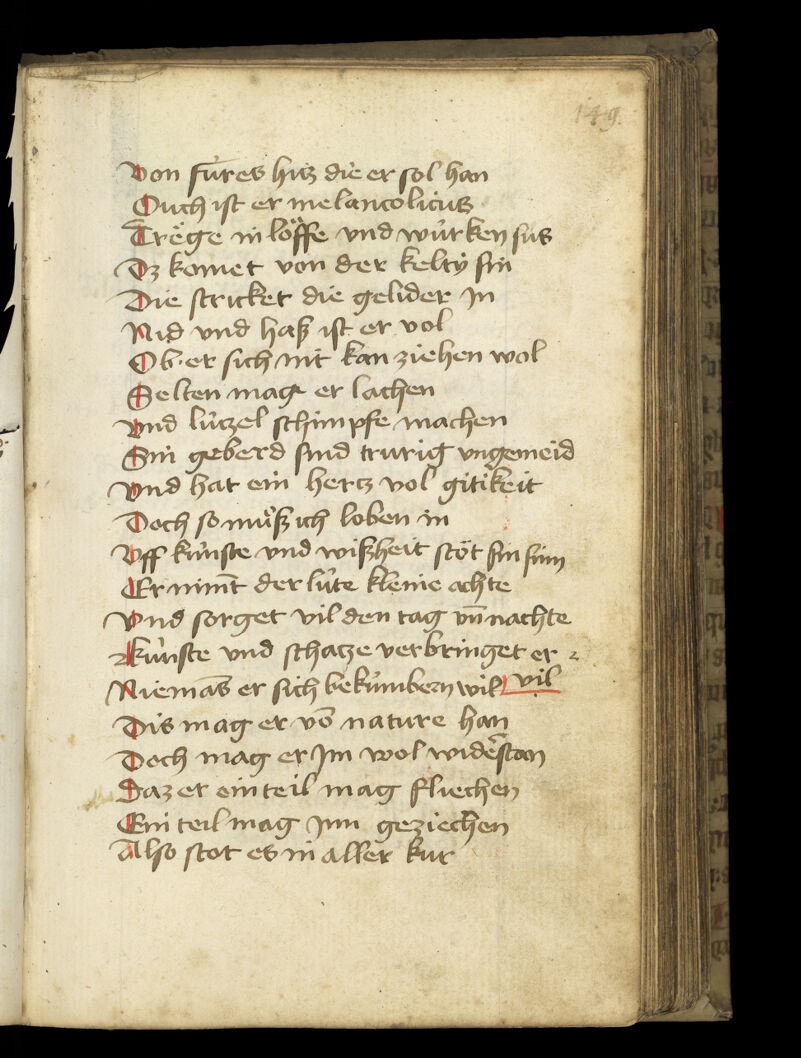 149.
Von fu̍res hitz die er sol han
Ouch ist er melancolicus
Trege in löffe vnd wu̍rken sus
Dz komet von der kelty sin
Die stricket die gelider In
Nid vnd hasz ist er vol
Ob er sich nit kan ziehen wol
Selten mag er lachen
vnd lu̍tzel schimpfe machen
Sin geberd sind trurig vngemeid
vnd hat ein hertz vol gitikeit
Doch so muͦsz ich loben in
Vff ku̍nste vnd wiszheit stot sin sinn
Er nimt̄ der lu̍te kleine achte
Vnd sorget vil den tag vn̄ nachte
Ku̍nste vnd schatze verbringet er vil
Niemās er sich beku̍mbern wil
Dis mag er vō nature han
Doch mag er Im wol widerstan
Daz er ein teil mag fliechen
Ein teil mag Inn geziechen
Also stot es in aller kur